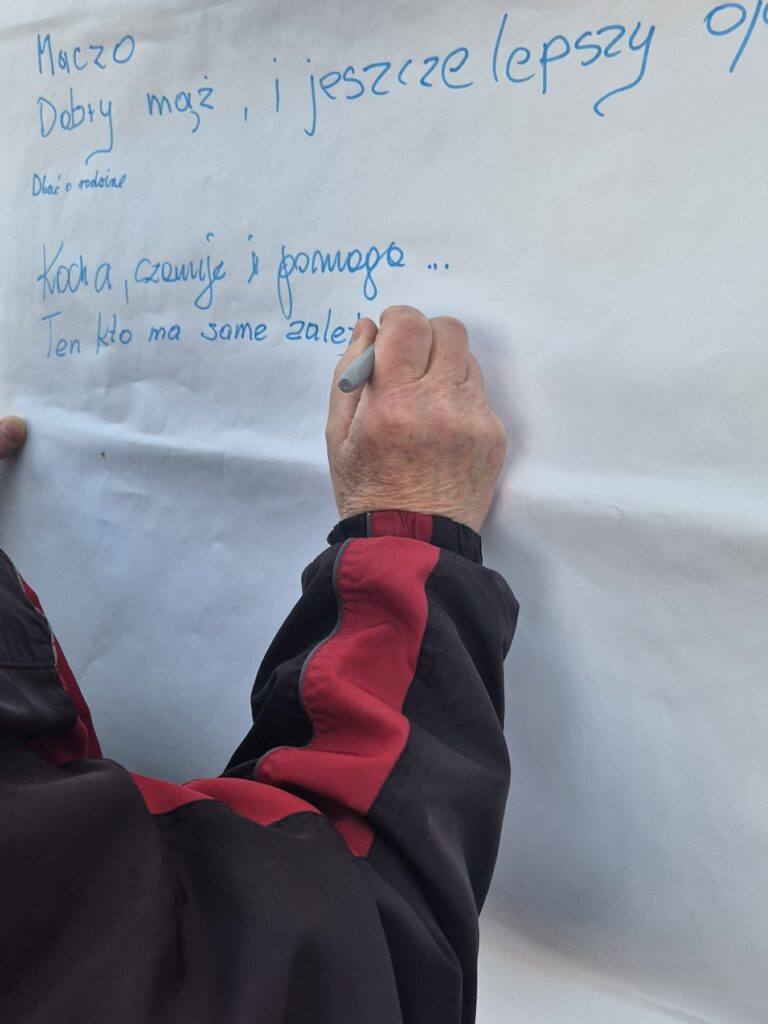 Maczo
Dobry mąż, i jeszcze lepszy
Dbać o rodzinę
Kocha, czanuje i pomaga ...
Ten kto ma same